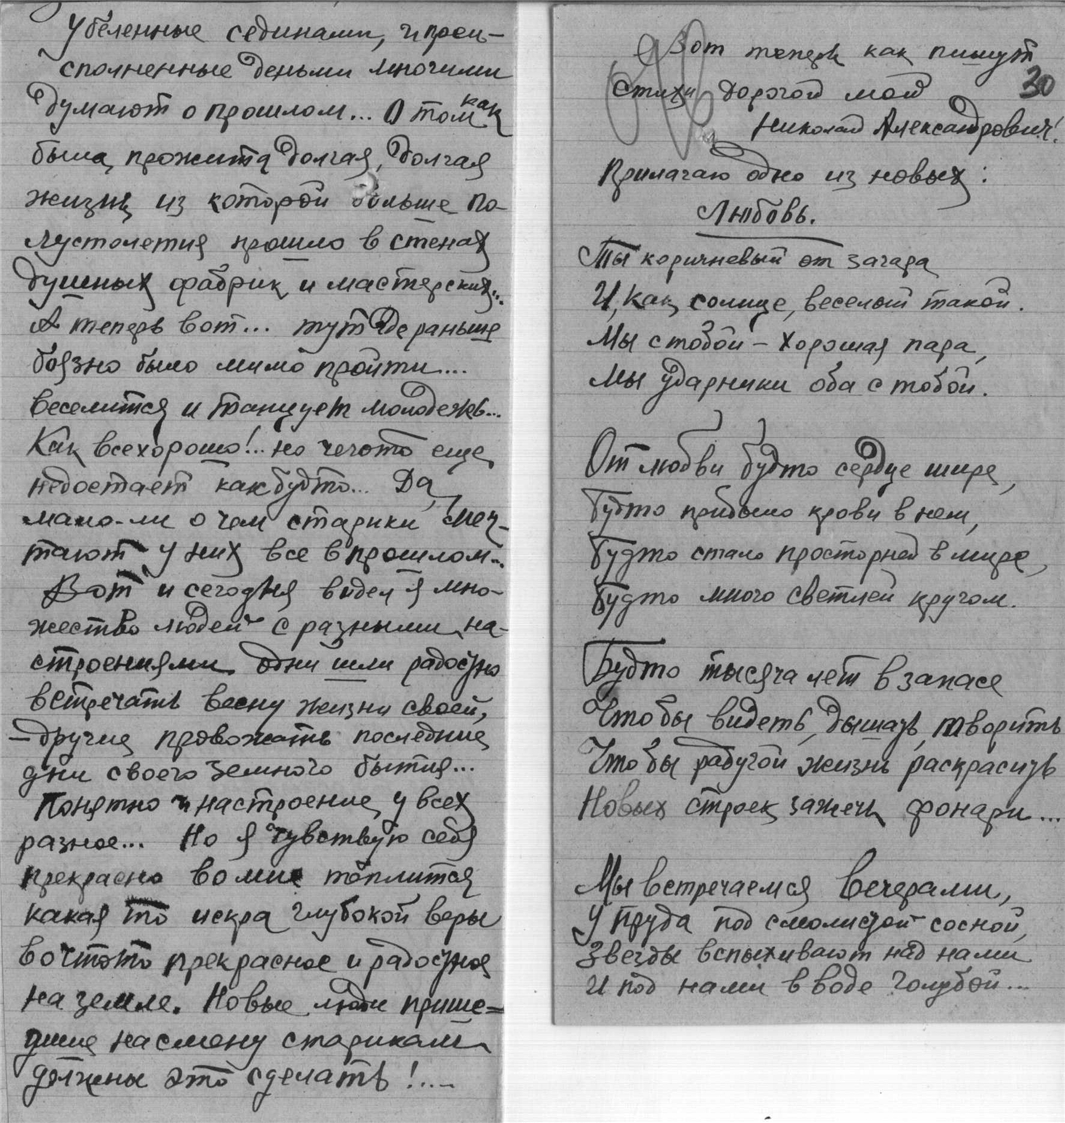 убеленные сединами, и преис-
сполненные деньми многими
думают о прошлом... О том как
была, прожита долгая, долгая
жизнь из которой больше по-
лустолетия прошло в стенах
душных фабрик и мастерских...
А теперь вот... тут где раньше
боязно было мимо пройти....
веселится и танцует молодежь...
Как все хорошо!.. но чегото еще
недостает как будто... Да,
мало-ли о чем старики меч-
тают у них все в прошлом...
Вот и сегодня видел я мно-
жество людей с разными на-
строениями одни шли радостно
встречать весну жизни своей,
– другие провожать последние
дни своего земного бытия...
Понятно и настроение у всех
разное... Но я чувствую себя
прекрасно во мне теплится
какая то искра глубокой веры
во чтото прекрасное и радостное
на земле. Новые люди прише=
дшие на смену старикам
должны это сделать!....
Вот теперь как пишут
30
стихи дорогой мой
Николай Александрович!
Прилагаю одно из новых:
Любовь.
Ты коричневый от загара
И, как солнце, веселый такой.
Мы с тобой – хорошая пара,
Мы ударники оба с тобой.
От любви будто сердце шире,
Будто прибыло крови в нем,
Будто стало просторней в мире,
Будто много светлей кругом.
Будто тысяча лет в запасе
Чтобы видеть, дышать, творить
Чтобы радугой жизнь раскрасить
Новых строек зажечь фонари...
Мы встречаемся вечерами,
У пруда под смолистой сосной,
Звезды вспыхивают над нами
И под нами в воде голубой...